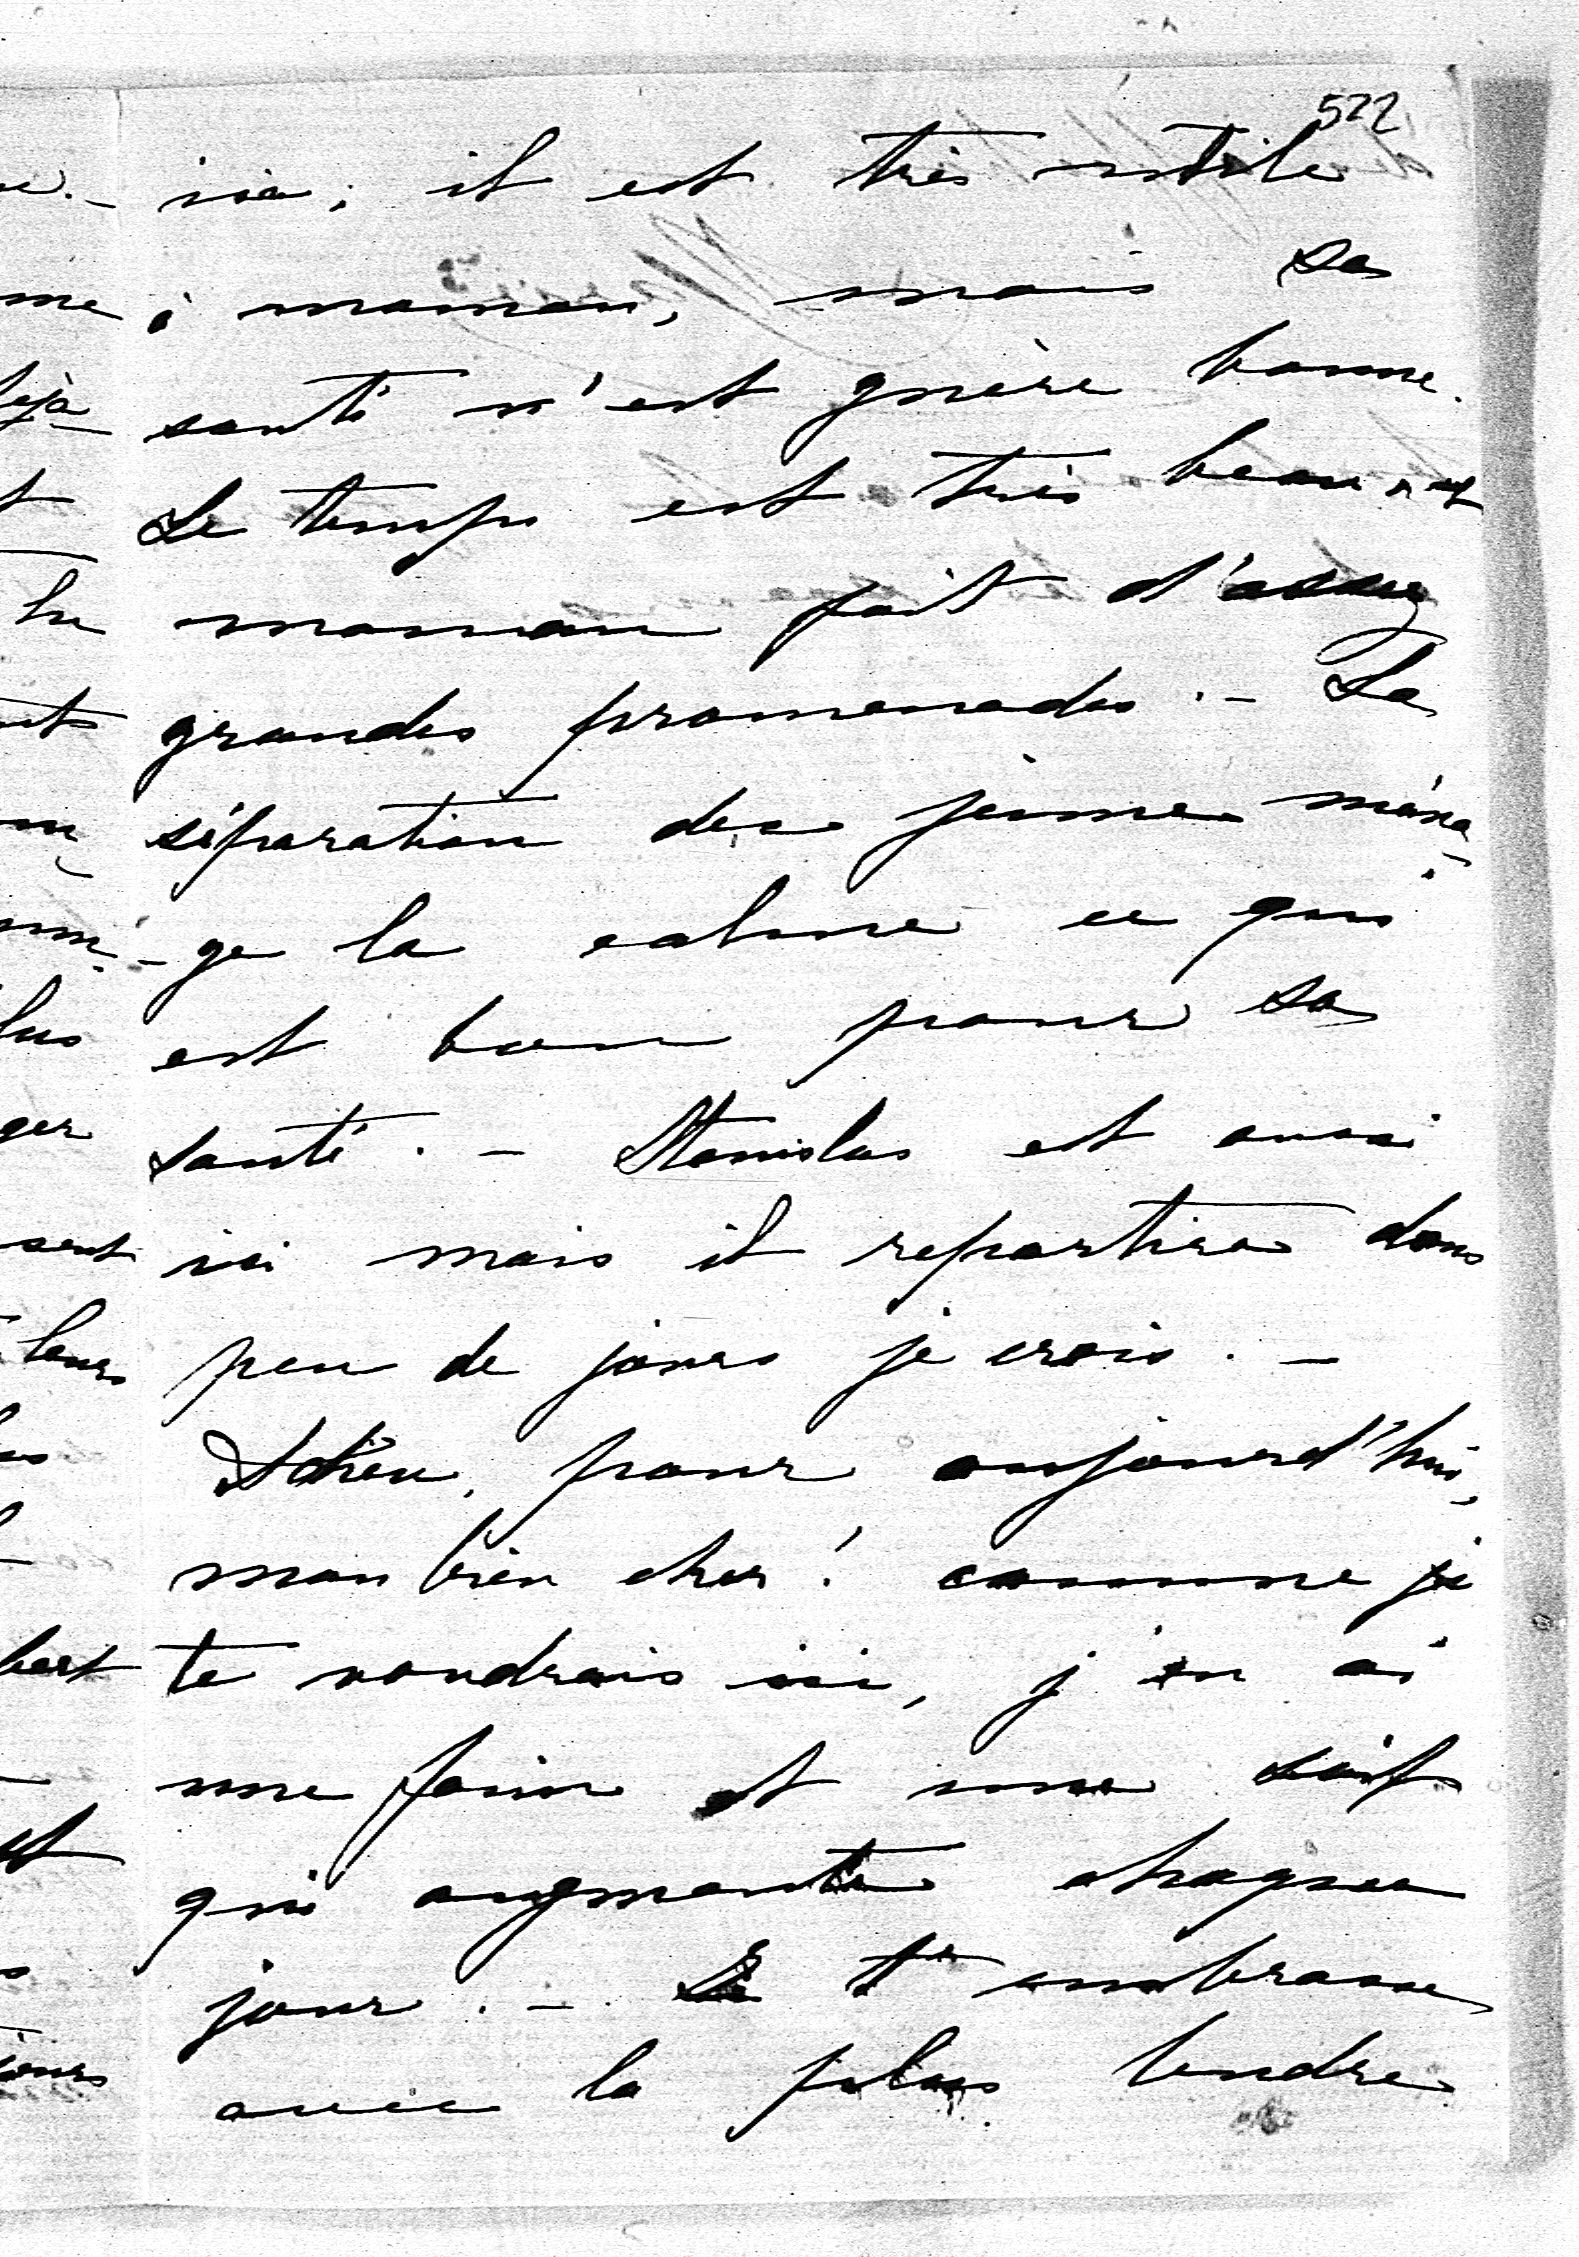 522
ici; il est très utile
à maman, mais sa
santé n'est guère bonne.
Le temps est très beau, et
maman fait d'assez
grandes promenades. – La
séparation de ce jeune ména-
ge la calme ce qui
est bon pour sa
santé. – Stanislas est aussi
ici mais il repartira dans
peu de jours je crois. –
Adieu, pour aujourd'hui,
mon bien cher! comme je
te voudrais ici, j'en ai
une faim et une soif
qui augmente chaque
jour. – Je t'embrasse
avec la plus tendre